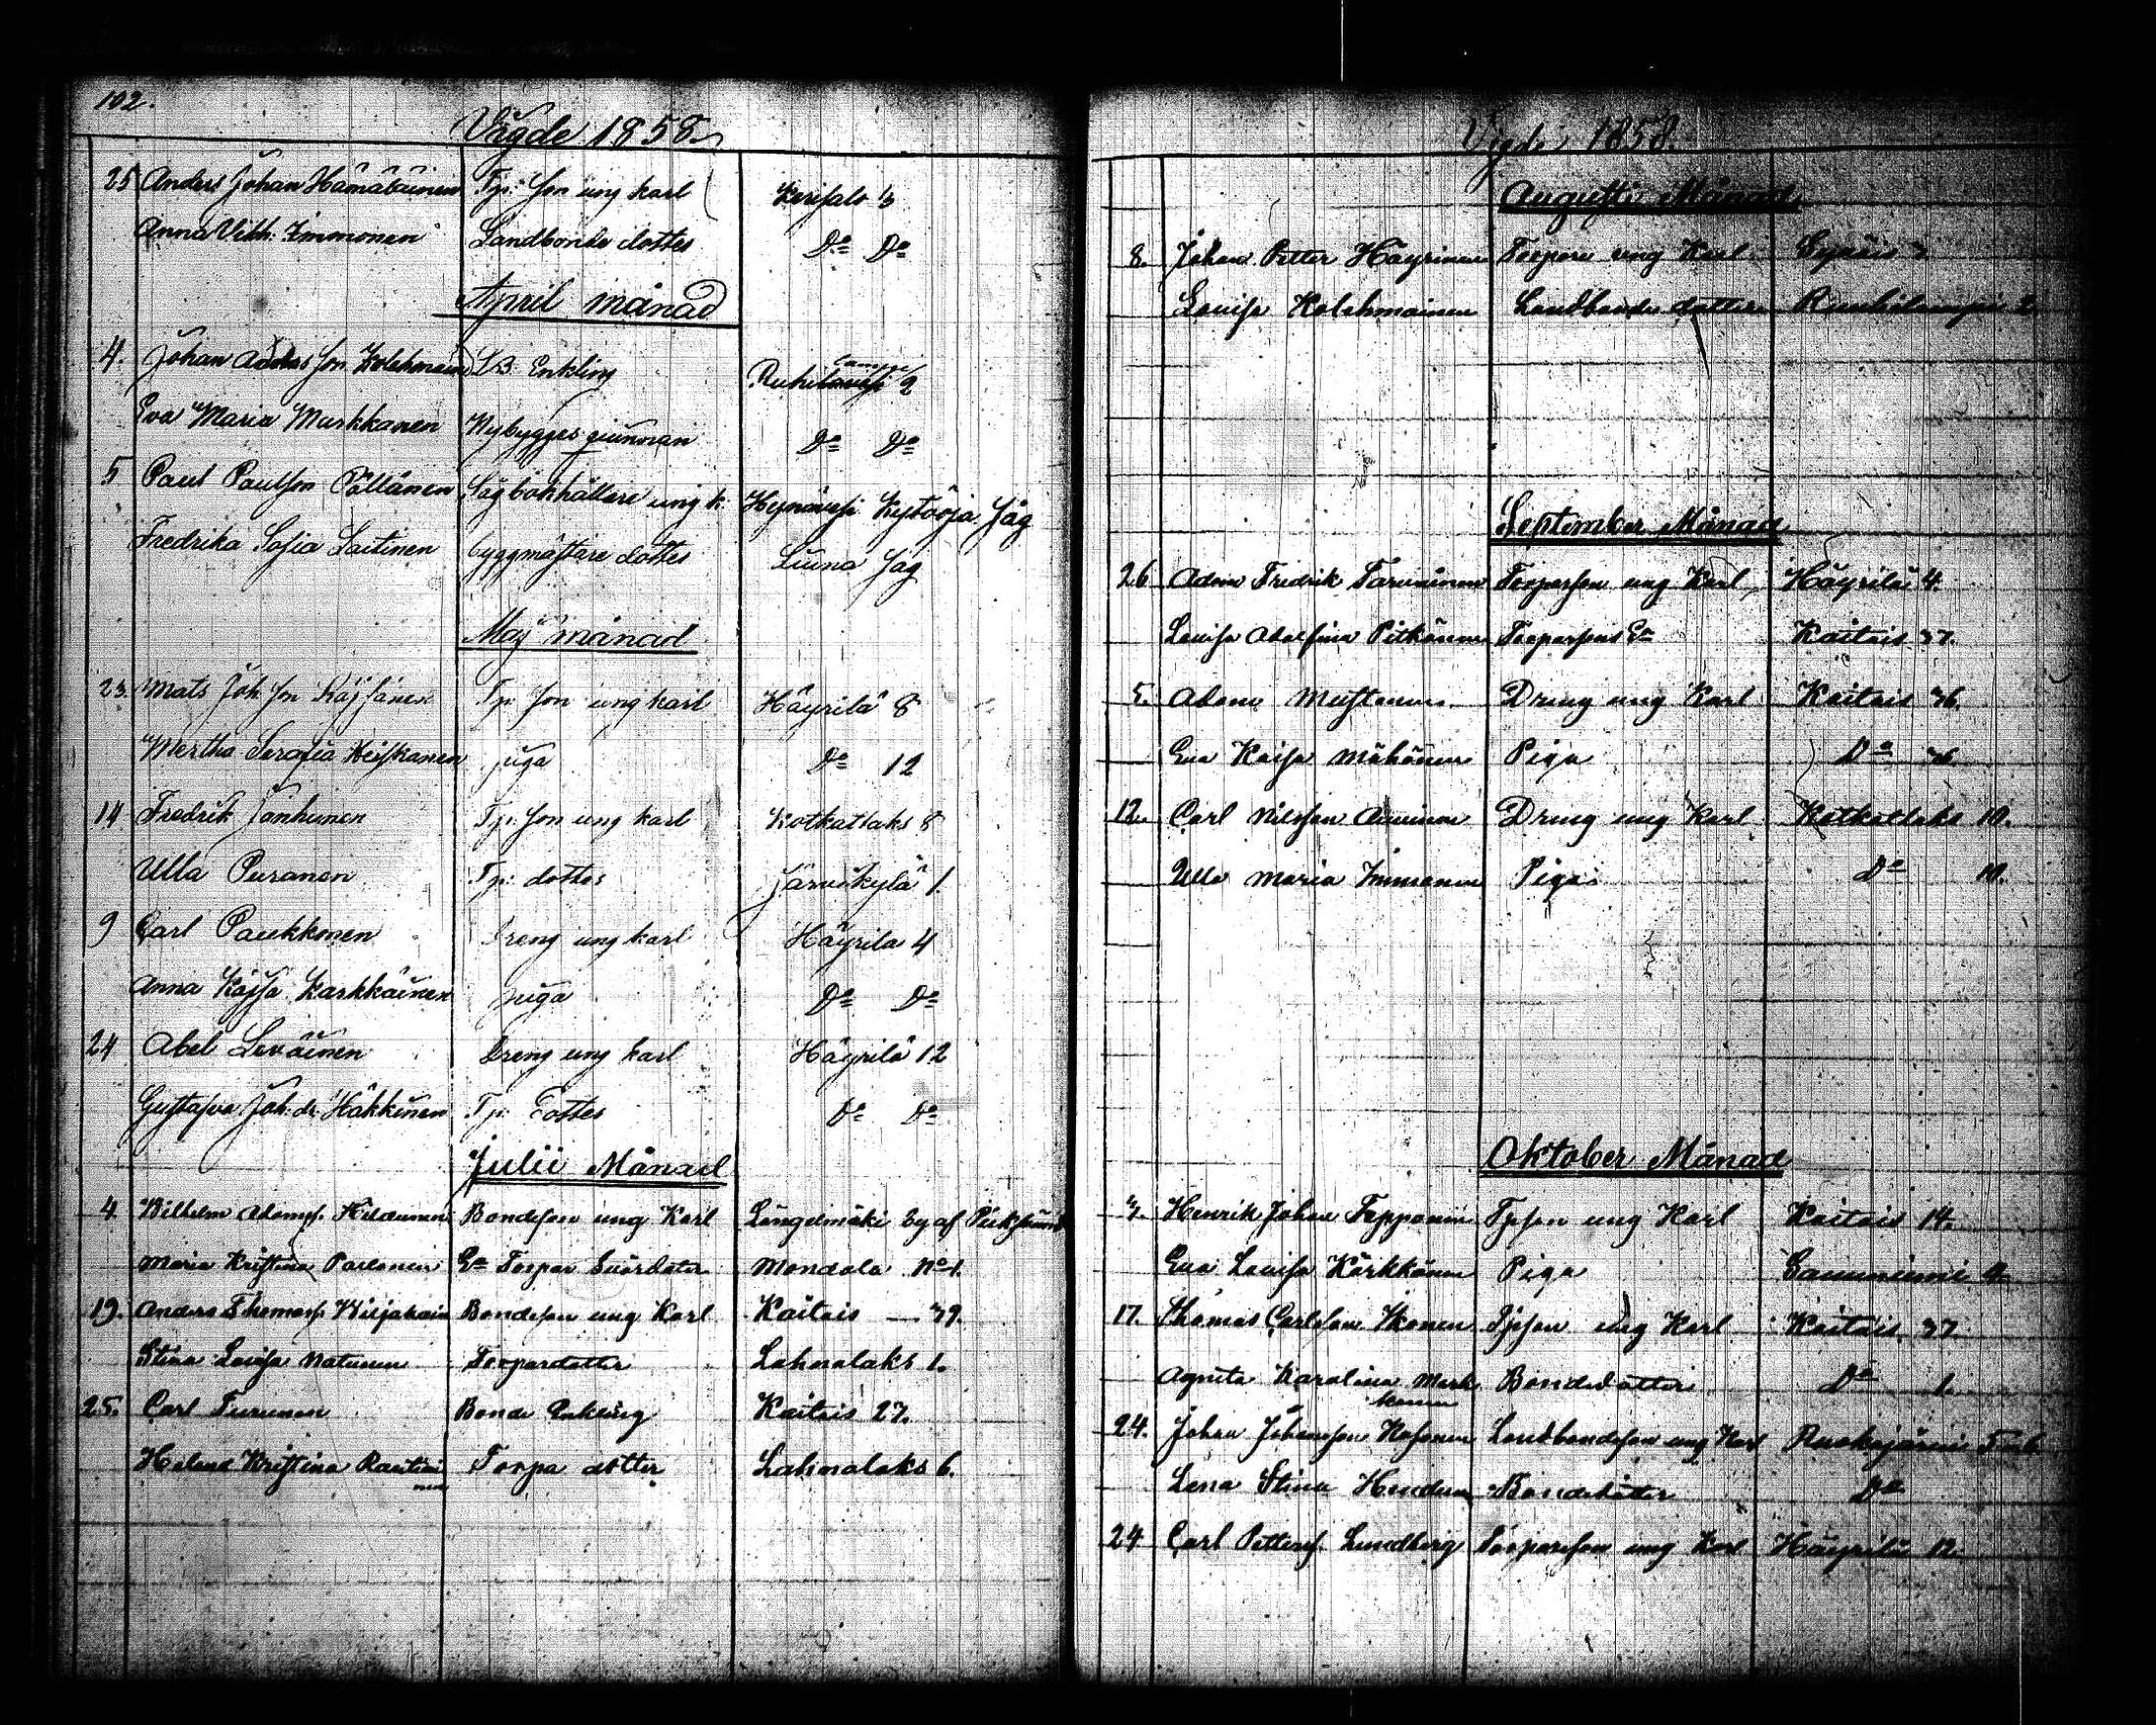 102.
Vigde 1858
25 Anders Johan Hämäläinen Tp: son ung karl
Anna Vilh: Immonen Landbonde dotter D:o D:o
April månad
4. Johan Kolehmainen LB Enkling 2
Eva Maria Markkanen Nybygges D:o D:o
5 Paul Paulson Pöllänen Sågbokhållare ung k. Såg
Fredrika Sofia Laitinen byggmästare dotter Luna Såg
Maj månad
23. Mats Joh: son Räisänen Tp: son ung karl Häyrilä 8
Mertha Serafia Heiskanen piga D:o 12
14 Fredrik Janhunen Tp: son ung karl Kotkatlaks 8
Ulla Puranen Tp: dotter Järvikylä 1.
9 Carl Paukkonen Dreng ung karl Häyrilä 4
Anna Kajsa Karkkäinen piga D:o D:o
24 Abel Leväinen Dreng ung karl Häyrilä 12
Gustafva Joh: dr Häkkinen Tp: Dotter D:o D:o
Julii Månad
4. Wilhelm Adamss. Bondeson ung Karl Längelmäki by af
Maria Kristina Parkonen Mondola No 1.
19. Anders Thomass. Wiljakain Bondeson ung Karl Kaitais 39.
Stina Lovisa Natunen Torpardotter Lahnalaks 1.
25. Carl Turunen Bonde Enkling Kaitais 27.
Helena Kristina Rautiainen Torpa dotter Lahnalaks 6.
Vigde 1858.
Augusti Månad
8. Johan Petter Häyrinen Torpare ung Karl
Lovisa Kolehmainen Landbonde dotter Ruuhilampi 2.
September Månad
26 Adam Fredrik Torparson ung Karl Häyrilä 4.
Lovisa Adolfina Pitkänen Kaitais 37.
5. Adam Mustonen Dreng ung Karl Kaitais 36.
Eva Kaisa Mähönen Piga D:o 36
12. Carl Nilsson Dreng ung Karl Kotkatlaks 10.
Ulla Maria Immonen Piga D:o 10.
Oktober Månad
3. Henrik Johan Tapponin Tpson ung Karl Kaitais 14.
Eva Lovisa Kärkkänen Piga
17. Thomas Carlson Ikonen Tpson ung Karl Kaitais 37
Agneta Karolina Markkanen Bondedotter D:o 1.
24. Johan Johansson Landbondeson ung Karl Ruokojärvi
Lena Stina Bondedotter D:o
24 Carl Petterss. Lundberg Torpareson ung Karl Häyrilä 12.